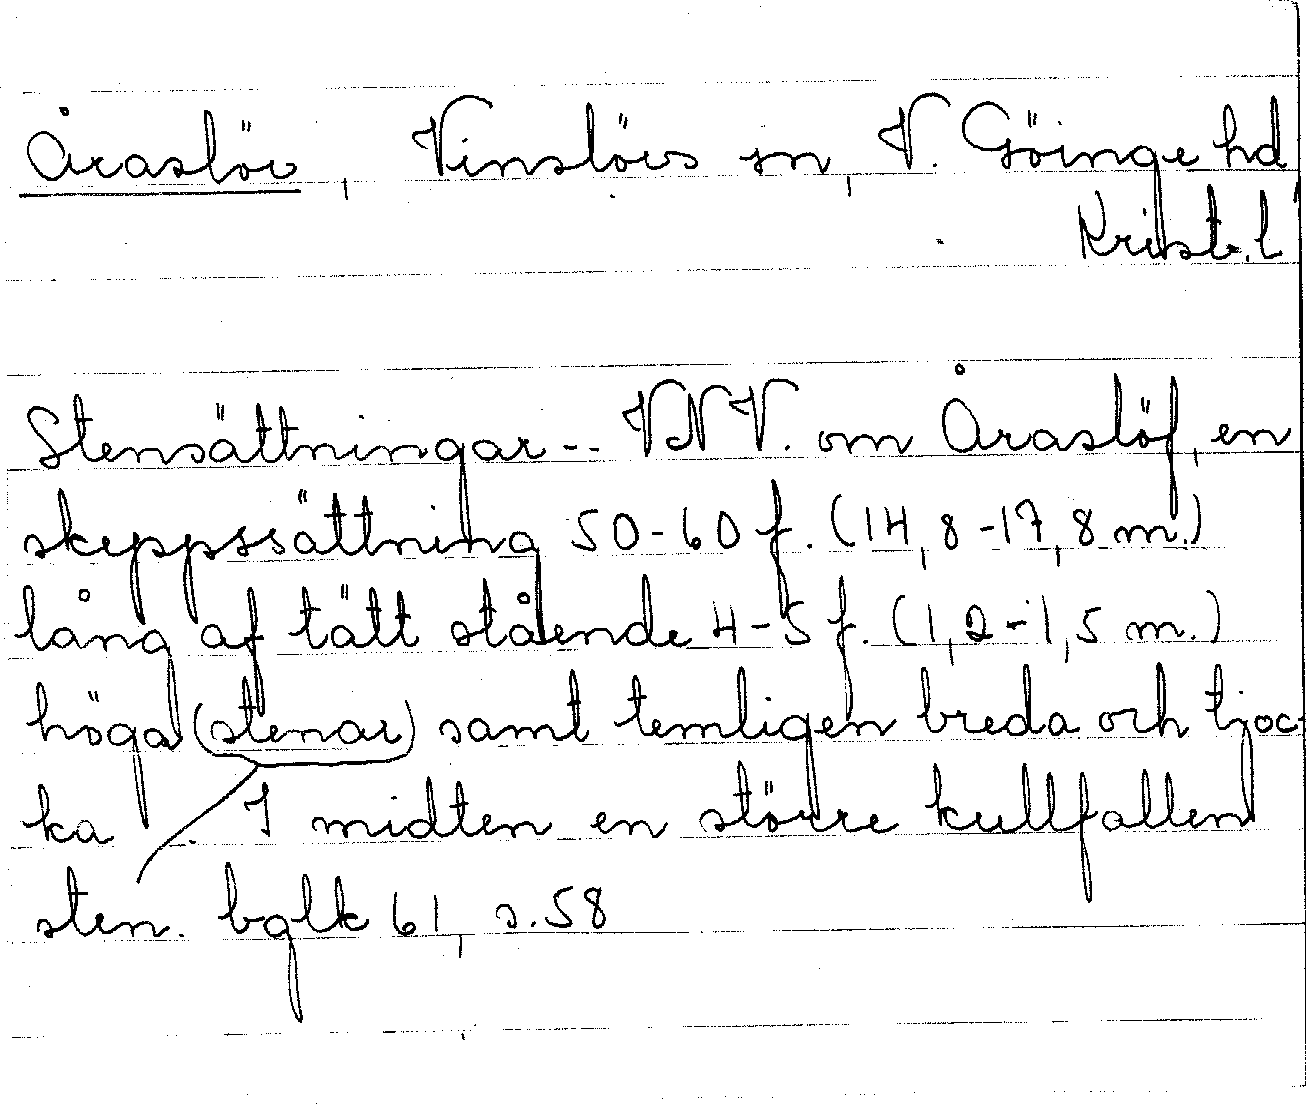 Åraslöv, Vinslövs sn, V. Göinge hd
Krist. l
Stensättningar -- VNV. om Åraslöf, en
skeppssättning 50-60 f. (14,8-17,8 m.)
lång af tätt stående 4-5 f. (1,2-1,5 m.)
höga (stenar) samt temligen breda och tjoc-
ka . I midten en större kullfallen
sten. bglk 61, s. 58